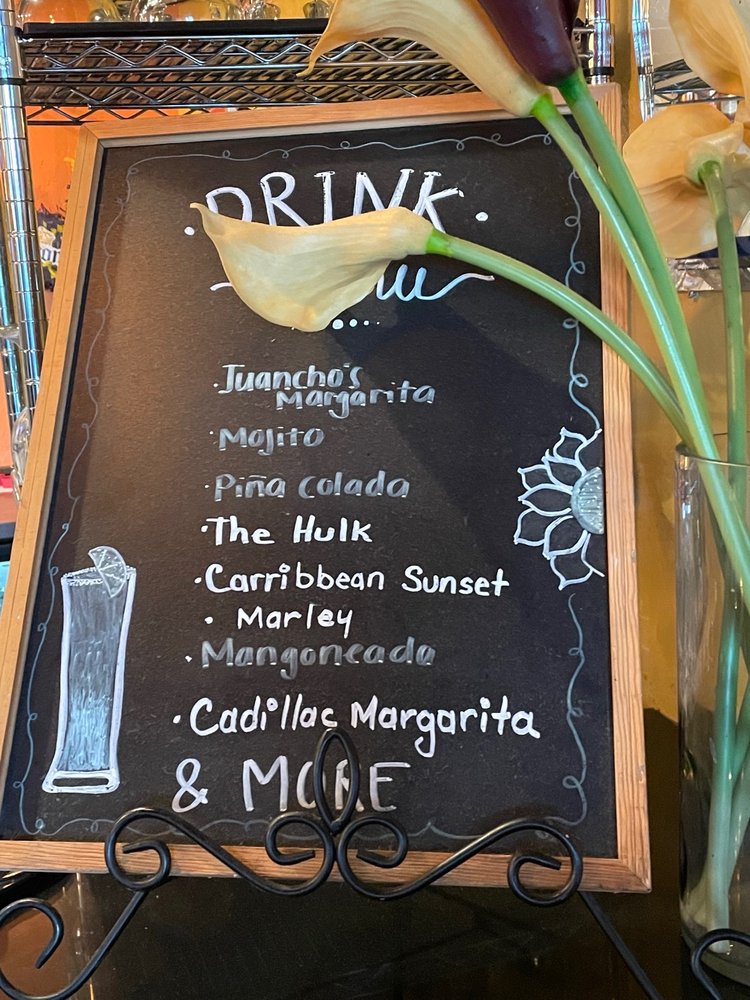 · DRINK ·
· Juancho's
Margarita
· Mojito
· Piña colada
· The Hulk
· Carribbean Sunset
· Marley
· Mangoneada
· Cadillac Margarita
& MORE